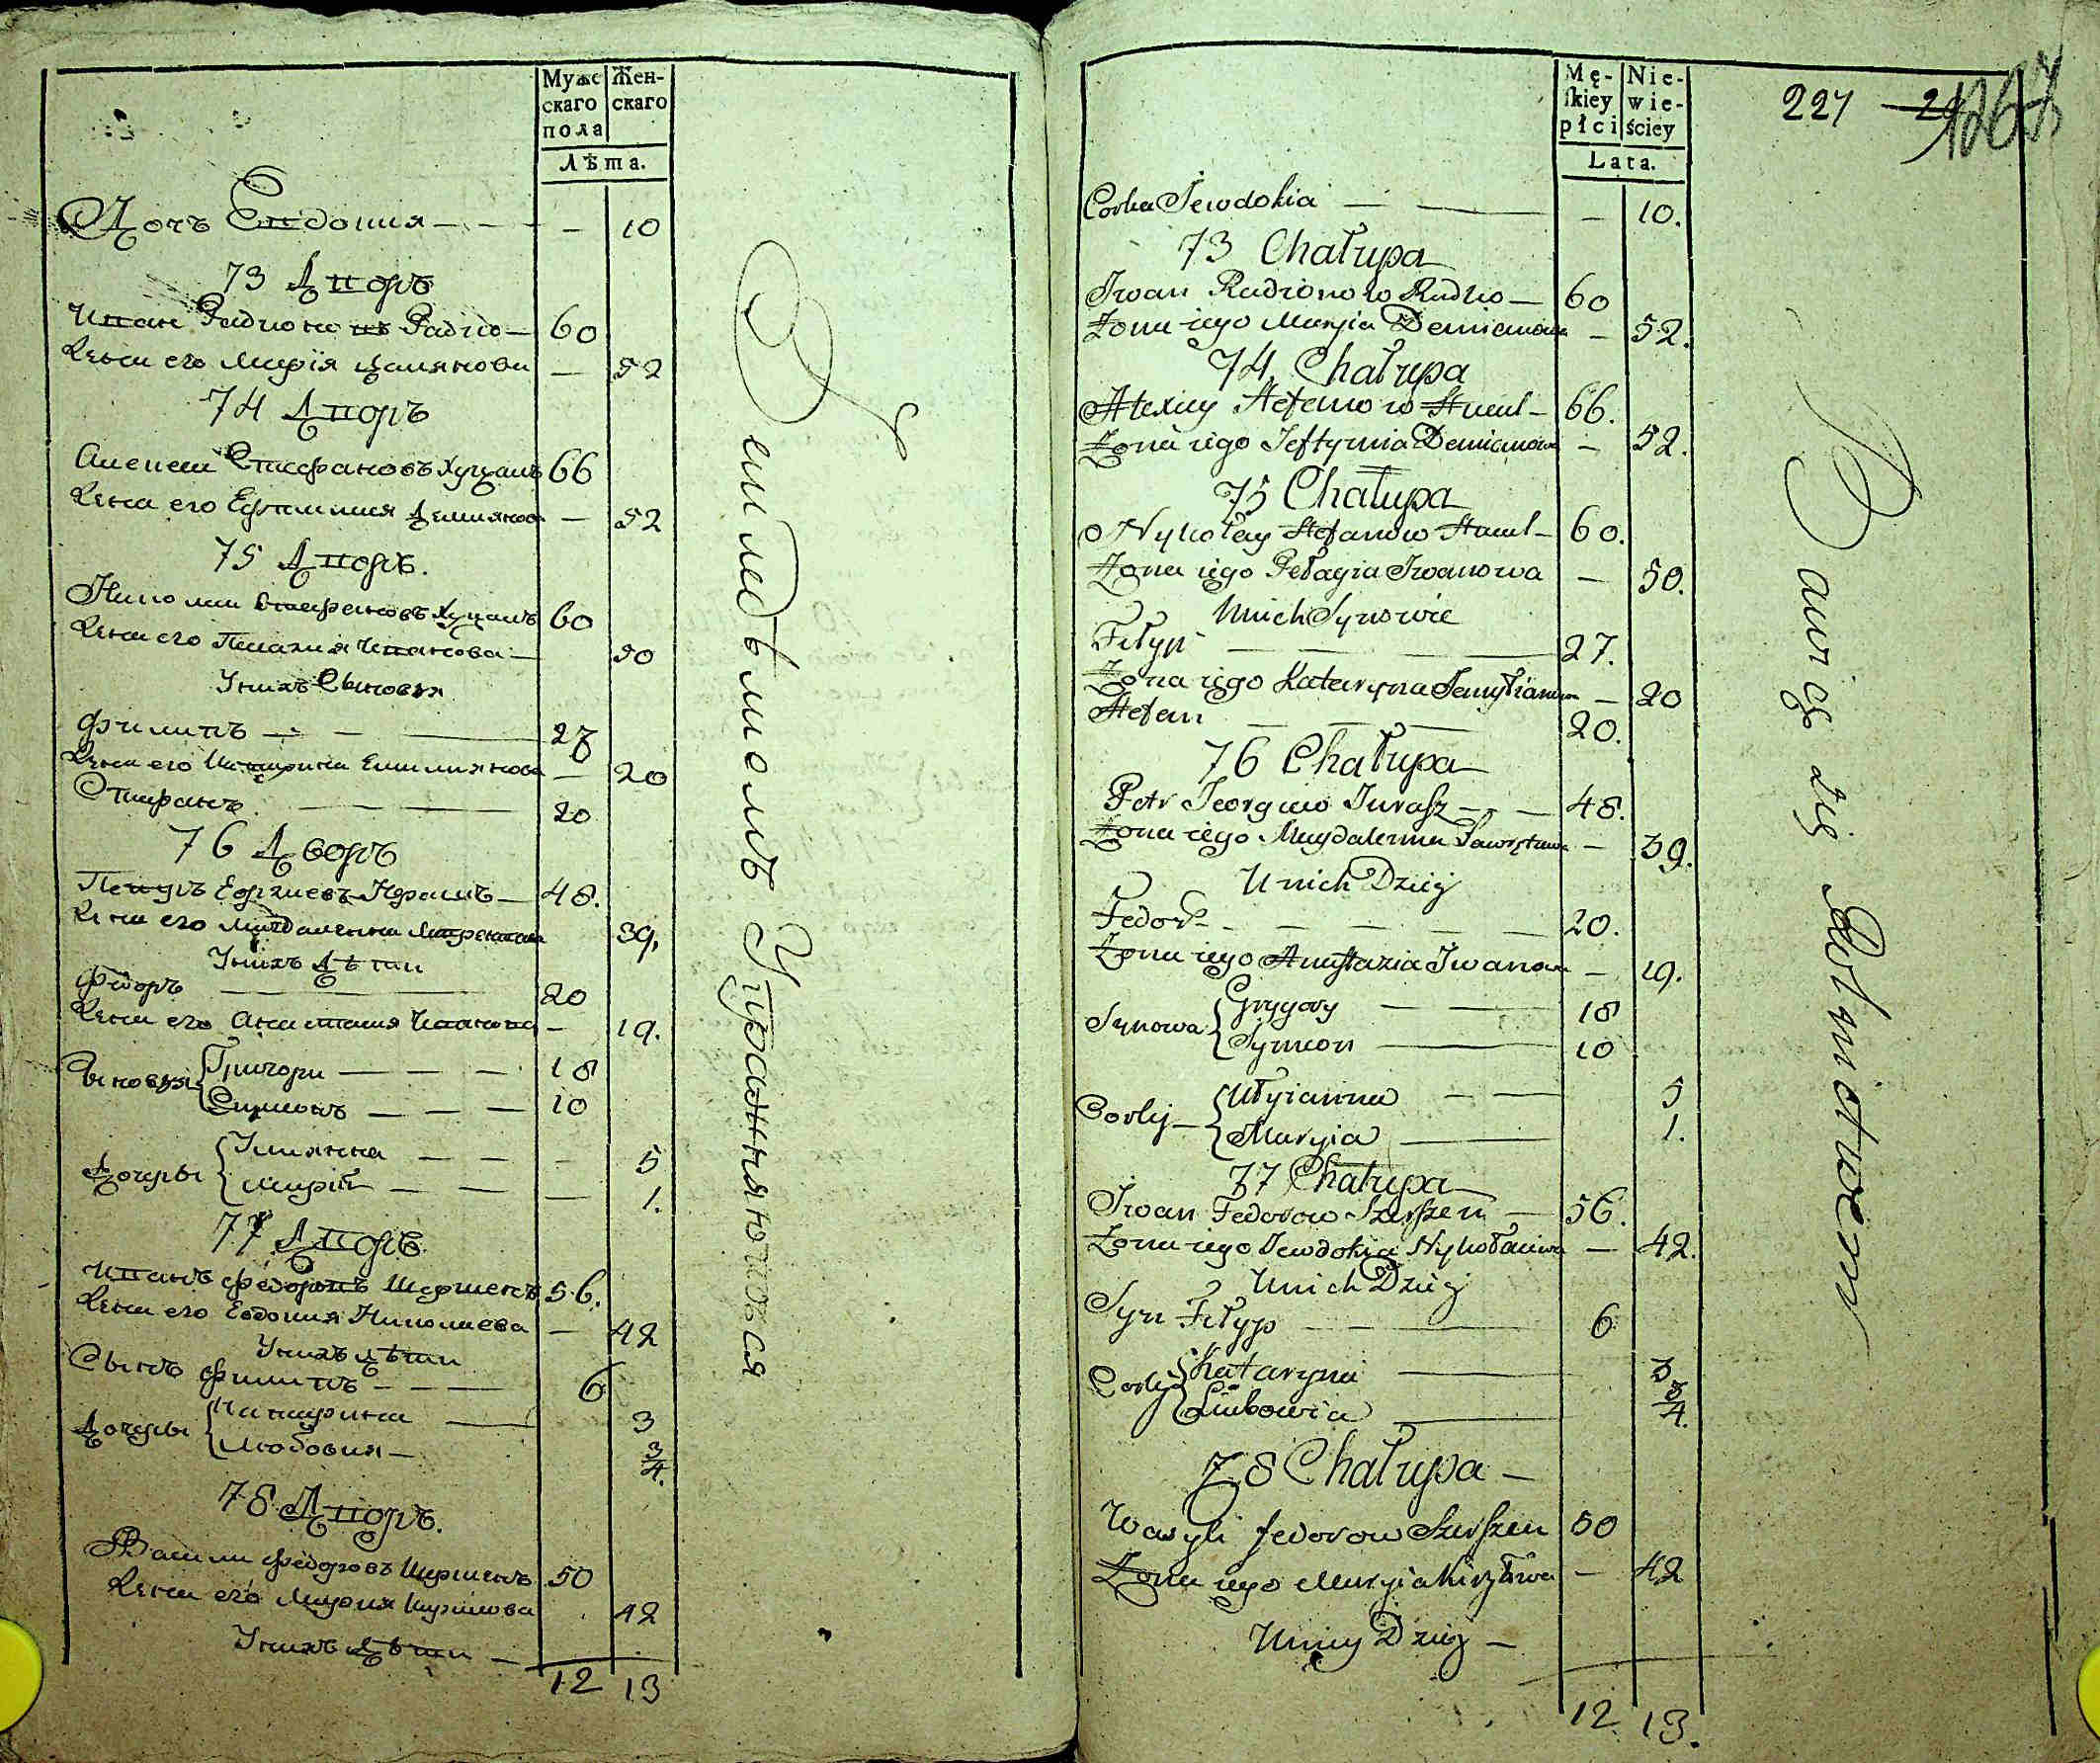 Муже
скаго
пола
Жен-
скаго
Лѣта.
Дочь Евдокия — — — 10
73 Дворъ
Иванъ Радионовъ Радко — 60
Жена его Мария Демянова — 52
74 Дворъ
Алексей Стефановъ 66
Жена его Ефтимия Демянова — 52
75 Дворъ.
Николай Стефановъ 60
Жена его Пелагия Иванова — 50
У нихъ Сыновья
Филипъ — — — 27
Жена его Катарина Емилиянова — 20
Стефанъ — — — 20
76 Дворъ
Петръ Еоргиевъ Юрашъ — 48.
Жена его Магдаленна 39.
У нихъ Дѣти
Федоръ — 20
Жена его Анастазия Иванова — 19.
Сыновья Григори — — — 18
Симионъ — — — 10
Дочери Улиянна — — — 5
Мария — — — 1.
77 Дворъ
Иванъ Федоровъ Шершенъ 56.
Жена его Евдокия Николаева — 42
У нихъ Дѣти
Сынъ Филипъ — — — 6
Дочери Катарина — 3
Любовия — 3/4.
78 Дворъ.
Васили Федоровъ Шершенъ 50
Жена его Мария Кирилова 42
У нихъ Дѣти —
12 13
Земледѣлиемъ Упражняютъся
Mę-
skiey
płci
Nie-
wie-
ściey
Lata.
227
Corka Jewdokia — — — 10.
73 Chałupa
Iwan Radionow Radko — 60
Żona iego Maryia Demianowa — 52.
74. Chałupa
Alexiy Stefanow — 66.
Żona iego Jeftymia Demianowa — 52.
75 Chałupa
Nykołay Stefanow — 60.
Żona iego Pełagia Iwanowa — 50.
U nich Synowie
Fiłyp — — — 27.
Żona iego Kataryna Jemyłianowa — 20
Stefan — — — 20.
76 Chałupa
Petr Jeorgiew Jurasz — — 48.
Żona iego Magdalenna — 39.
U nich Dzieci
Fedor — — — — — 20.
Żona iego Anastazia Iwanowa — 19.
Synowa Grygory — — 18
Symeon — 10
Corki — Ułyianna — — 5
Maryia — 1.
77 Chałupa
Iwan Fedorow Szerszen — 56.
Żona iego Jewdokia Nykołaiewa — 42.
U nich Dzieci
Syn Fiłyp — — 6
Corki Kataryna — 3
Liubowia — 3/4.
78 Chałupa —
Wasyli Fedorow Szerszen 50
Żona iego Maryia Kiryłowa — 42
U nich Dzieci —
12 13.
Bawią się Rolnictwem